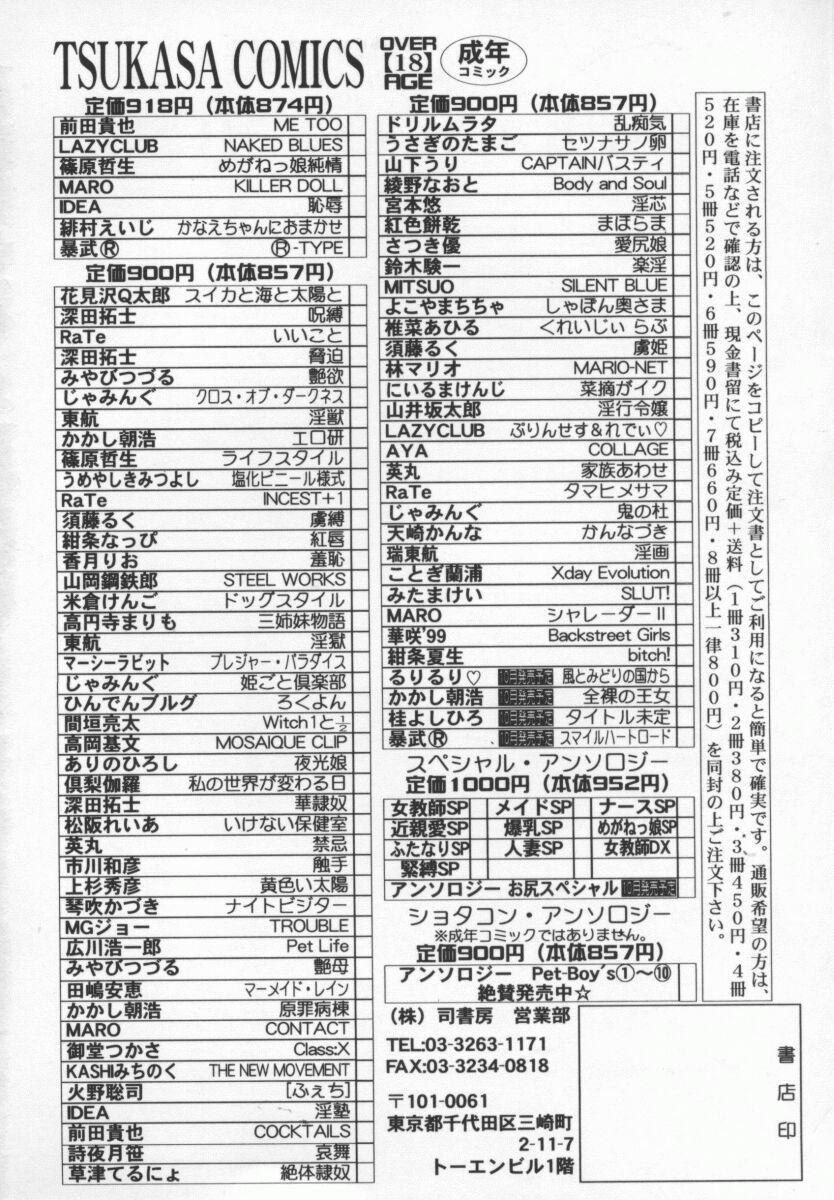 TSUKASA COMICS
OVER
【18】
AGE
成年
コミック
定価918円（本体874円）
前田貴也 ME TOO
LAZYCLUB NAKED BLUES
篠原哲生 めがねっ娘純情
MARO KILLER DOLL
IDEA 恥辱
緋村えいじ かなえちゃんにおまかせ
暴武Ⓡ Ⓡ-TYPE
定価900円（本体857円）
花見沢Q太郎 スイカと海と太陽と
深田拓士 呪縛
RaTe いいこと
深田拓士 脅迫
みやびつづる 艶欲
じゃみんぐ クロス・オブ・ダークネス
東航 淫獣
かかし朝浩 エロ研
篠原哲生 ライフスタイル
うめやしきみつよし 塩化ビニール様式
RaTe INCEST+1
須藤るく 虜縛
紺条なっぴ 紅唇
香月りお 羞恥
山岡鋼鉄郎 STEEL WORKS
米倉けんご ドッグスタイル
高円寺まりも 三姉妹物語
東航 淫獄
マーシーラビット プレジャー・パラダイス
じゃみんぐ 姫ごと倶楽部
ひんでんブルグ ろくよん
間垣亮太 Witch1と½
高岡基文 MOSAIQUE CLIP
ありのひろし 夜光娘
倶梨伽羅 私の世界が変わる日
深田拓士 華隷奴
松阪れいあ いけない保健室
英丸 禁忌
市川和彦 触手
上杉秀彦 黄色い太陽
琴吹かづき ナイトビジター
MGジョー TROUBLE
広川浩一郎 Pet Life
みやびつづる 艶母
田嶋安恵 マーメイド・レイン
かかし朝浩 原罪病棟
MARO CONTACT
御堂つかさ Class:X
KASHIみちのく THE NEW MOVEMENT
火野聡司 [ふぇち]
IDEA 淫塾
前田貴也 COCKTAILS
詩夜月笹 哀舞
草津てるにょ 絶体隷奴
定価900円（本体857円）
ドリルムラタ 乱痴気
うさぎのたまご セツナサノ卵
山下うり CAPTAINバスティ
綾野なおと Body and Soul
宮本悠 淫芯
紅色餅乾 まほらま
さつき優 愛尻娘
鈴木験一 楽淫
MITSUO SILENT BLUE
よこやまちちゃ しゃぼん奥さま
椎菜あひる くれいじぃ らぶ
須藤るく 虜姫
林マリオ MARIO-NET
にいるまけんじ 菜摘がイク
山井坂太郎 淫行令嬢
LAZYCLUB ぷりんせす&れでぃ♡
AYA COLLAGE
英丸 家族あわせ
RaTe タマヒメサマ
じゃみんぐ 鬼の杜
天崎かんな かんなづき
瑞東航 淫画
ことぎ蘭浦 Xday Evolution
みたまけい SLUT!
MARO シャレーダーⅡ
華咲'99 Backstreet Girls
紺条夏生 bitch!
るりるり♡ 10月発売予定 風とみどりの国から
かかし朝浩 10月発売予定 全裸の王女
桂よしひろ 10月発売予定 タイトル未定
暴武Ⓡ 、10月発売予定 スマイルハートロード
スペシャル・アンソロジー
定価1000円（本体952円）
女教師SP メイドSP ナースSP
近親愛SP 爆乳SP めがねっ娘SP
ふたなりSP 人妻SP 女教師DX
緊縛SP
アンソロジー お尻スペシャル 10月発売予定
ショタコン・アンソロジー
※成年コミックではありません。
定価900円（本体857円）
アンソロジー Pet-Boy's①〜⑩
絶賛発売中☆
（株）司書房 営業部
TEL:03-3263-1171
FAX:03-3234-0818
〒101-0061
東京都千代田区三崎町
2-11-7
トーエンビル1階
書店印
書店に注文される方は、このページをコピーして注文書としてご利用になると簡単で確実です。通販希望の方は、
在庫を電話などで確認の上、現金書留にて税込み定価＋送料（1冊310円・2冊380円・3冊450円・4冊
520円・5冊520円・6冊590円・7冊660円・8冊以上一律800円）を同封の上ご注文下さい。